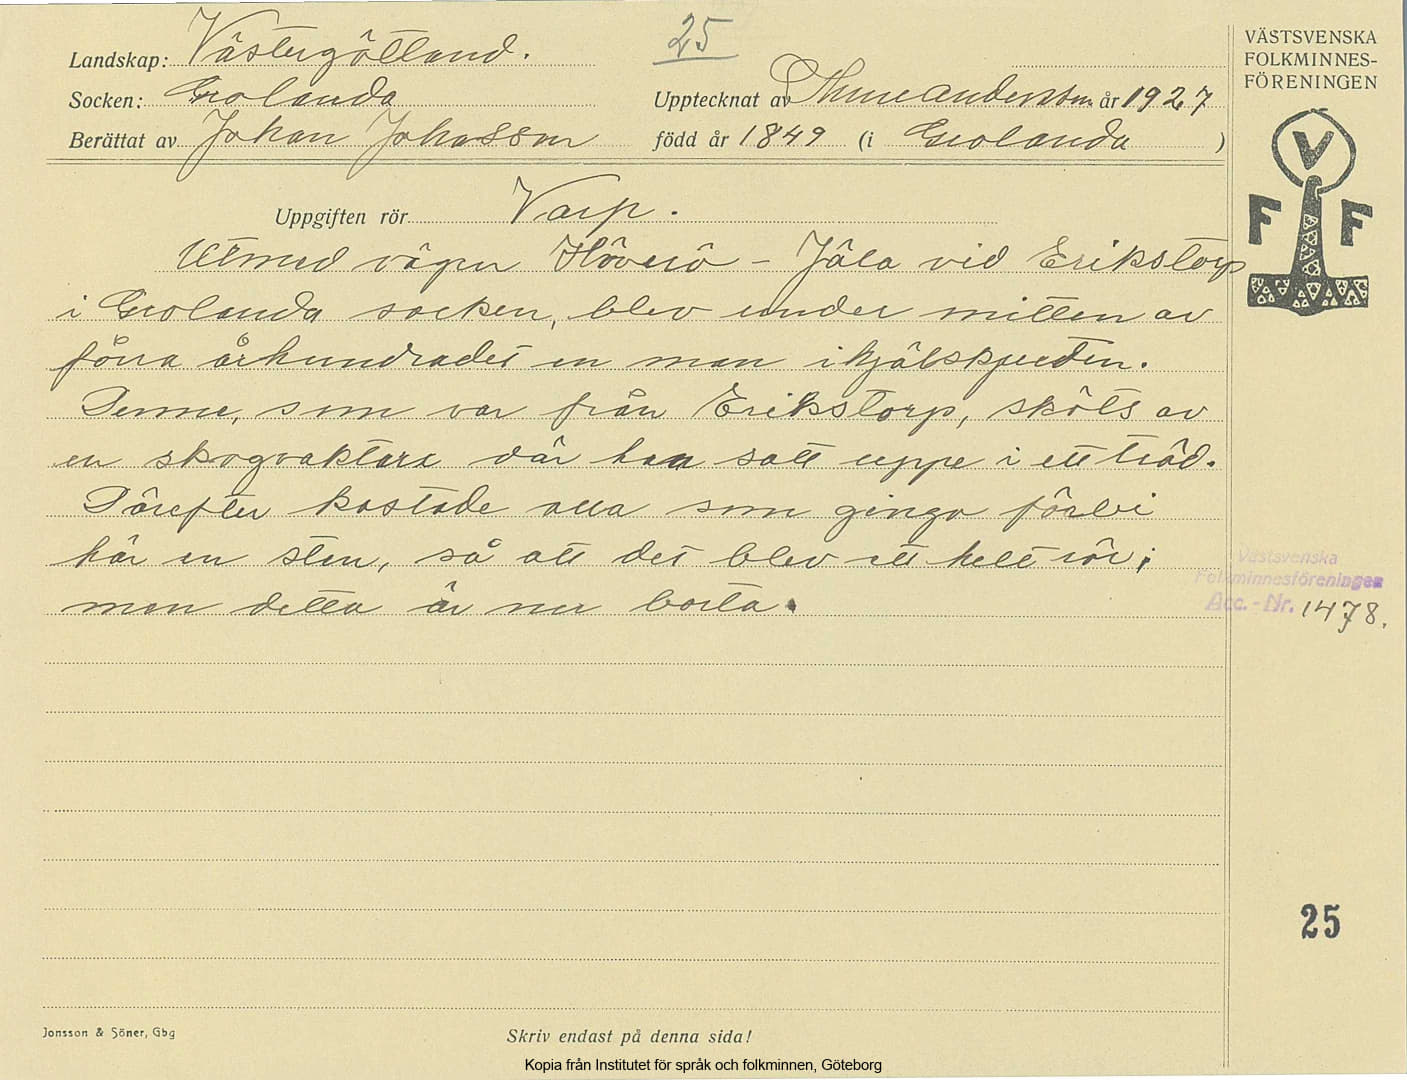 25
VÄSTSVENSKA
FOLKMINNES-
FÖRENINGEN
Landskap: Västergötland.
Socken: Grolanda
Upptecknat av Thure Andersson år 1927
Berättat av Johan Johansson född år 1849 (i Grolanda )
V
F F
Uppgiften rör Varp.
Utmed vägen Höverö - Jäla vid Erikstorp
i Grolanda socken, blev under mitten av
förra århundradet en man ihjälskjuten.
Denne, som var från Erikstorp, sköts av
en skogvaktare där han satt uppe i ett träd.
Därefter kastade alla som gingo förbi
här en sten, så att det blev ett helt rör;
men detta är nu borta.
Västsvenska
Folkminnesföreningen
Acc.-Nr. 1478.
25
Jonsson & Söner, Gbg
Skriv endast på denna sida!
Kopia från Institutet för språk och folkminnen, Göteborg